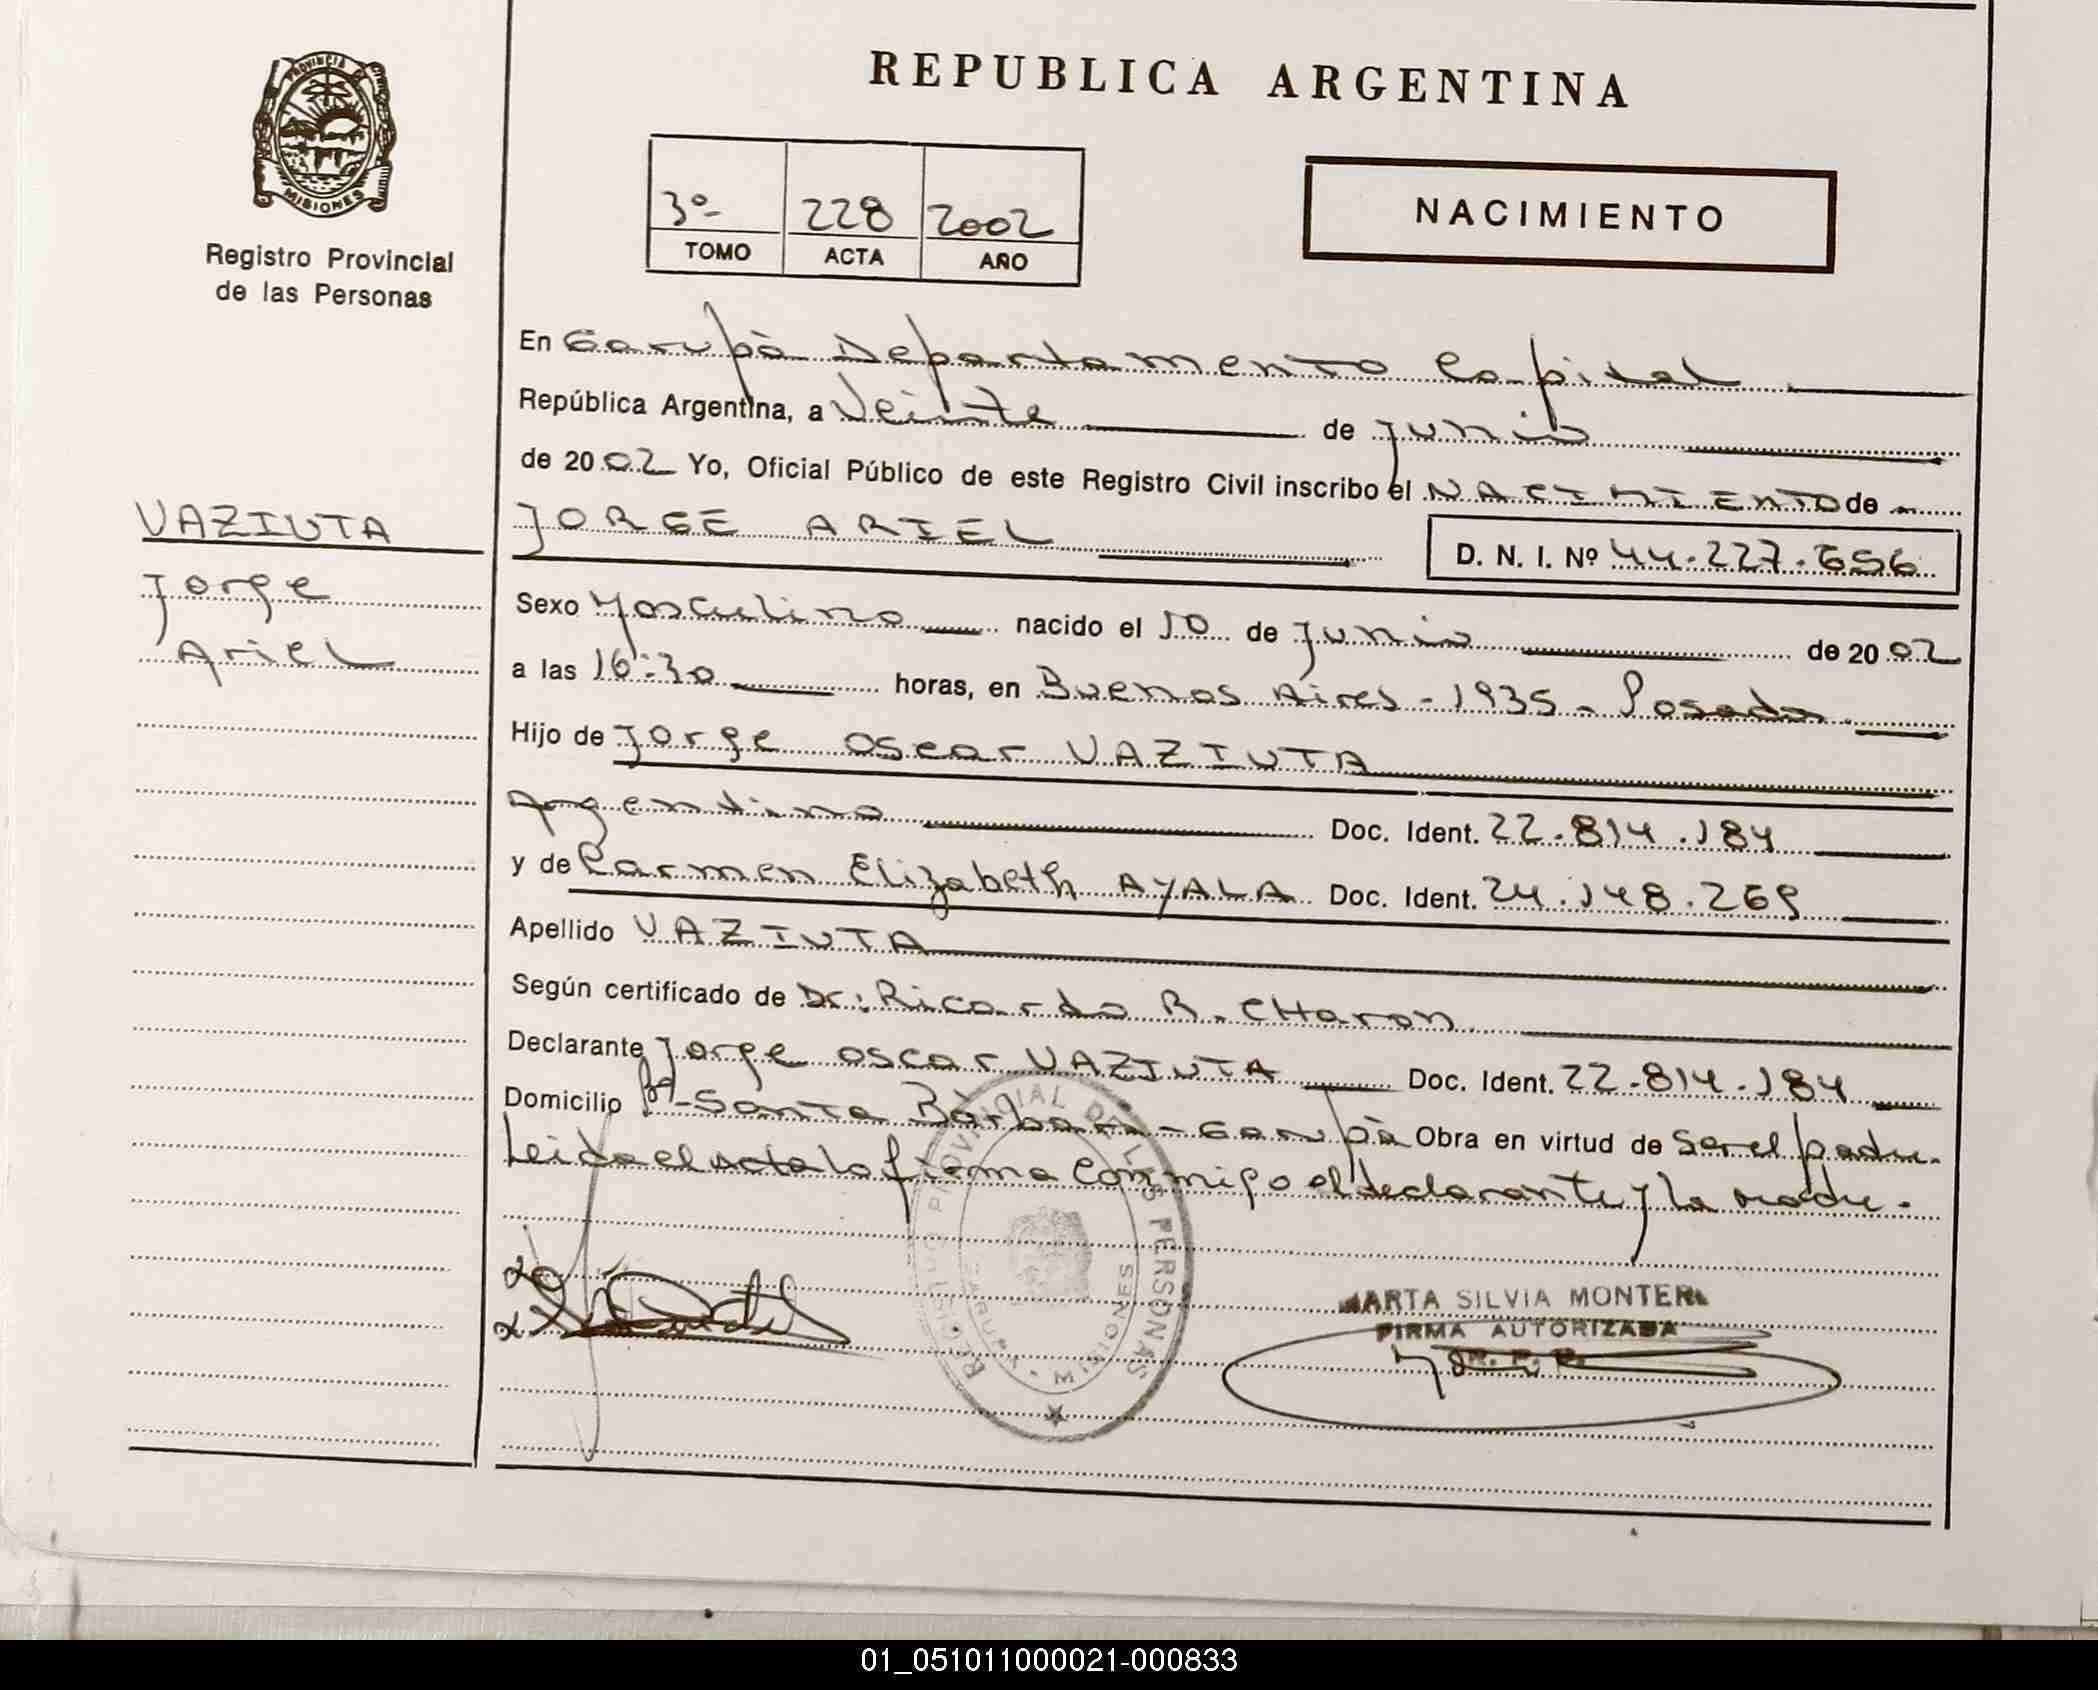 REPUBLICA ARGENTINA
PROVINCIA DE
MISIONES
Registro Provincial
de las Personas
3º 228 2002
TOMO ACTA AÑO
NACIMIENTO
En Garupà Departamento Capital
República Argentina, a Veinte de junio
de 2002 Yo, Oficial Público de este Registro Civil inscribo el NACIMIENTO de
VAZIUTA
Jorge
Ariel
JORGE ARIEL
D. N. I. Nº 44.227.656
Sexo Masculino nacido el 10 de junio de 2002
a las 16:30 horas, en Buenos Aires - 1935 - Posadas
Hijo de Jorge Oscar VAZIUTA
Argentino Doc. Ident. 22.814.184
y de Carmen Elizabeth AYALA Doc. Ident. 24.148.269
Apellido VAZIUTA
Según certificado de Dr: Ricardo R. CHaron
Declarante Jorge Oscar VAZIUTA Doc. Ident. 22.814.184
Domicilio Bº Santa Bàrbara - Garupà Obra en virtud de Ser el padre.
Leida el acta la firma conmigo el declarante y la madre.
REGISTRO PROVINCIAL DE LAS PERSONAS
GARUPA - MISIONES
MARTA SILVIA MONTER
FIRMA AUTORIZADA
R. P. P.
01_051011000021-000833